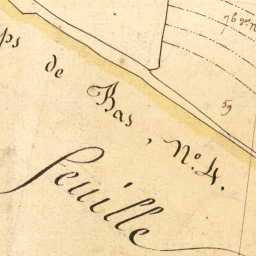 ps de Bas, N.º 4.
feuille
59